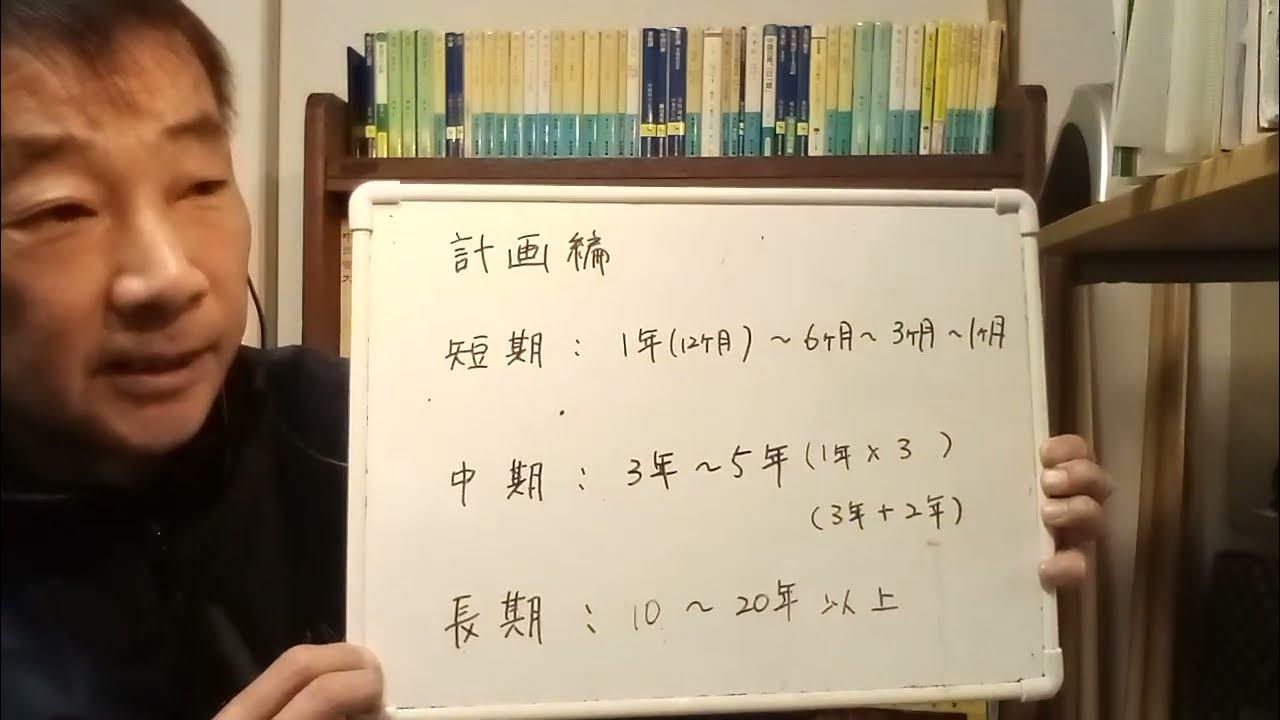 計画編
短期：1年(12ケ月)～6ケ月～3ケ月～1ケ月
中期：3年～5年(1年×3 )
(3年+2年)
長期：10～20年以上